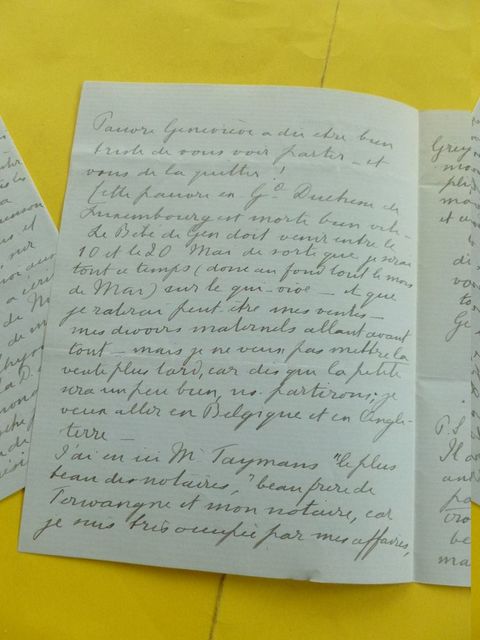 Pauvre Geneviève a du être bien
triste de vous voir partir – et
vous de la quitter!
Cette pauvre ex Gde Duchesse de
Luxembourg est morte bien vite –
Le Bébé de Gen doit venir entre le
10 et le 20 Mai de sorte que je serai
tout ce temps (donc au fond tout le mois
de Mai) sur le qui-vive – et que
je raterai peut être mes ventes –
mes devoirs maternels allant avant
tout – mais je ne veux pas mettre la
vente plus tard, car dès que la petite
sera un peu bien, ns. partirons; je
veux aller en Belgique et en Angle-
terre –
J'ai eu ici Mr Taymans "le plus
beau des notaires," beau frère de
Terwangne et mon notaire, car
je suis très occupée par mes affaires,
Grey
mon
P.S.
Il a